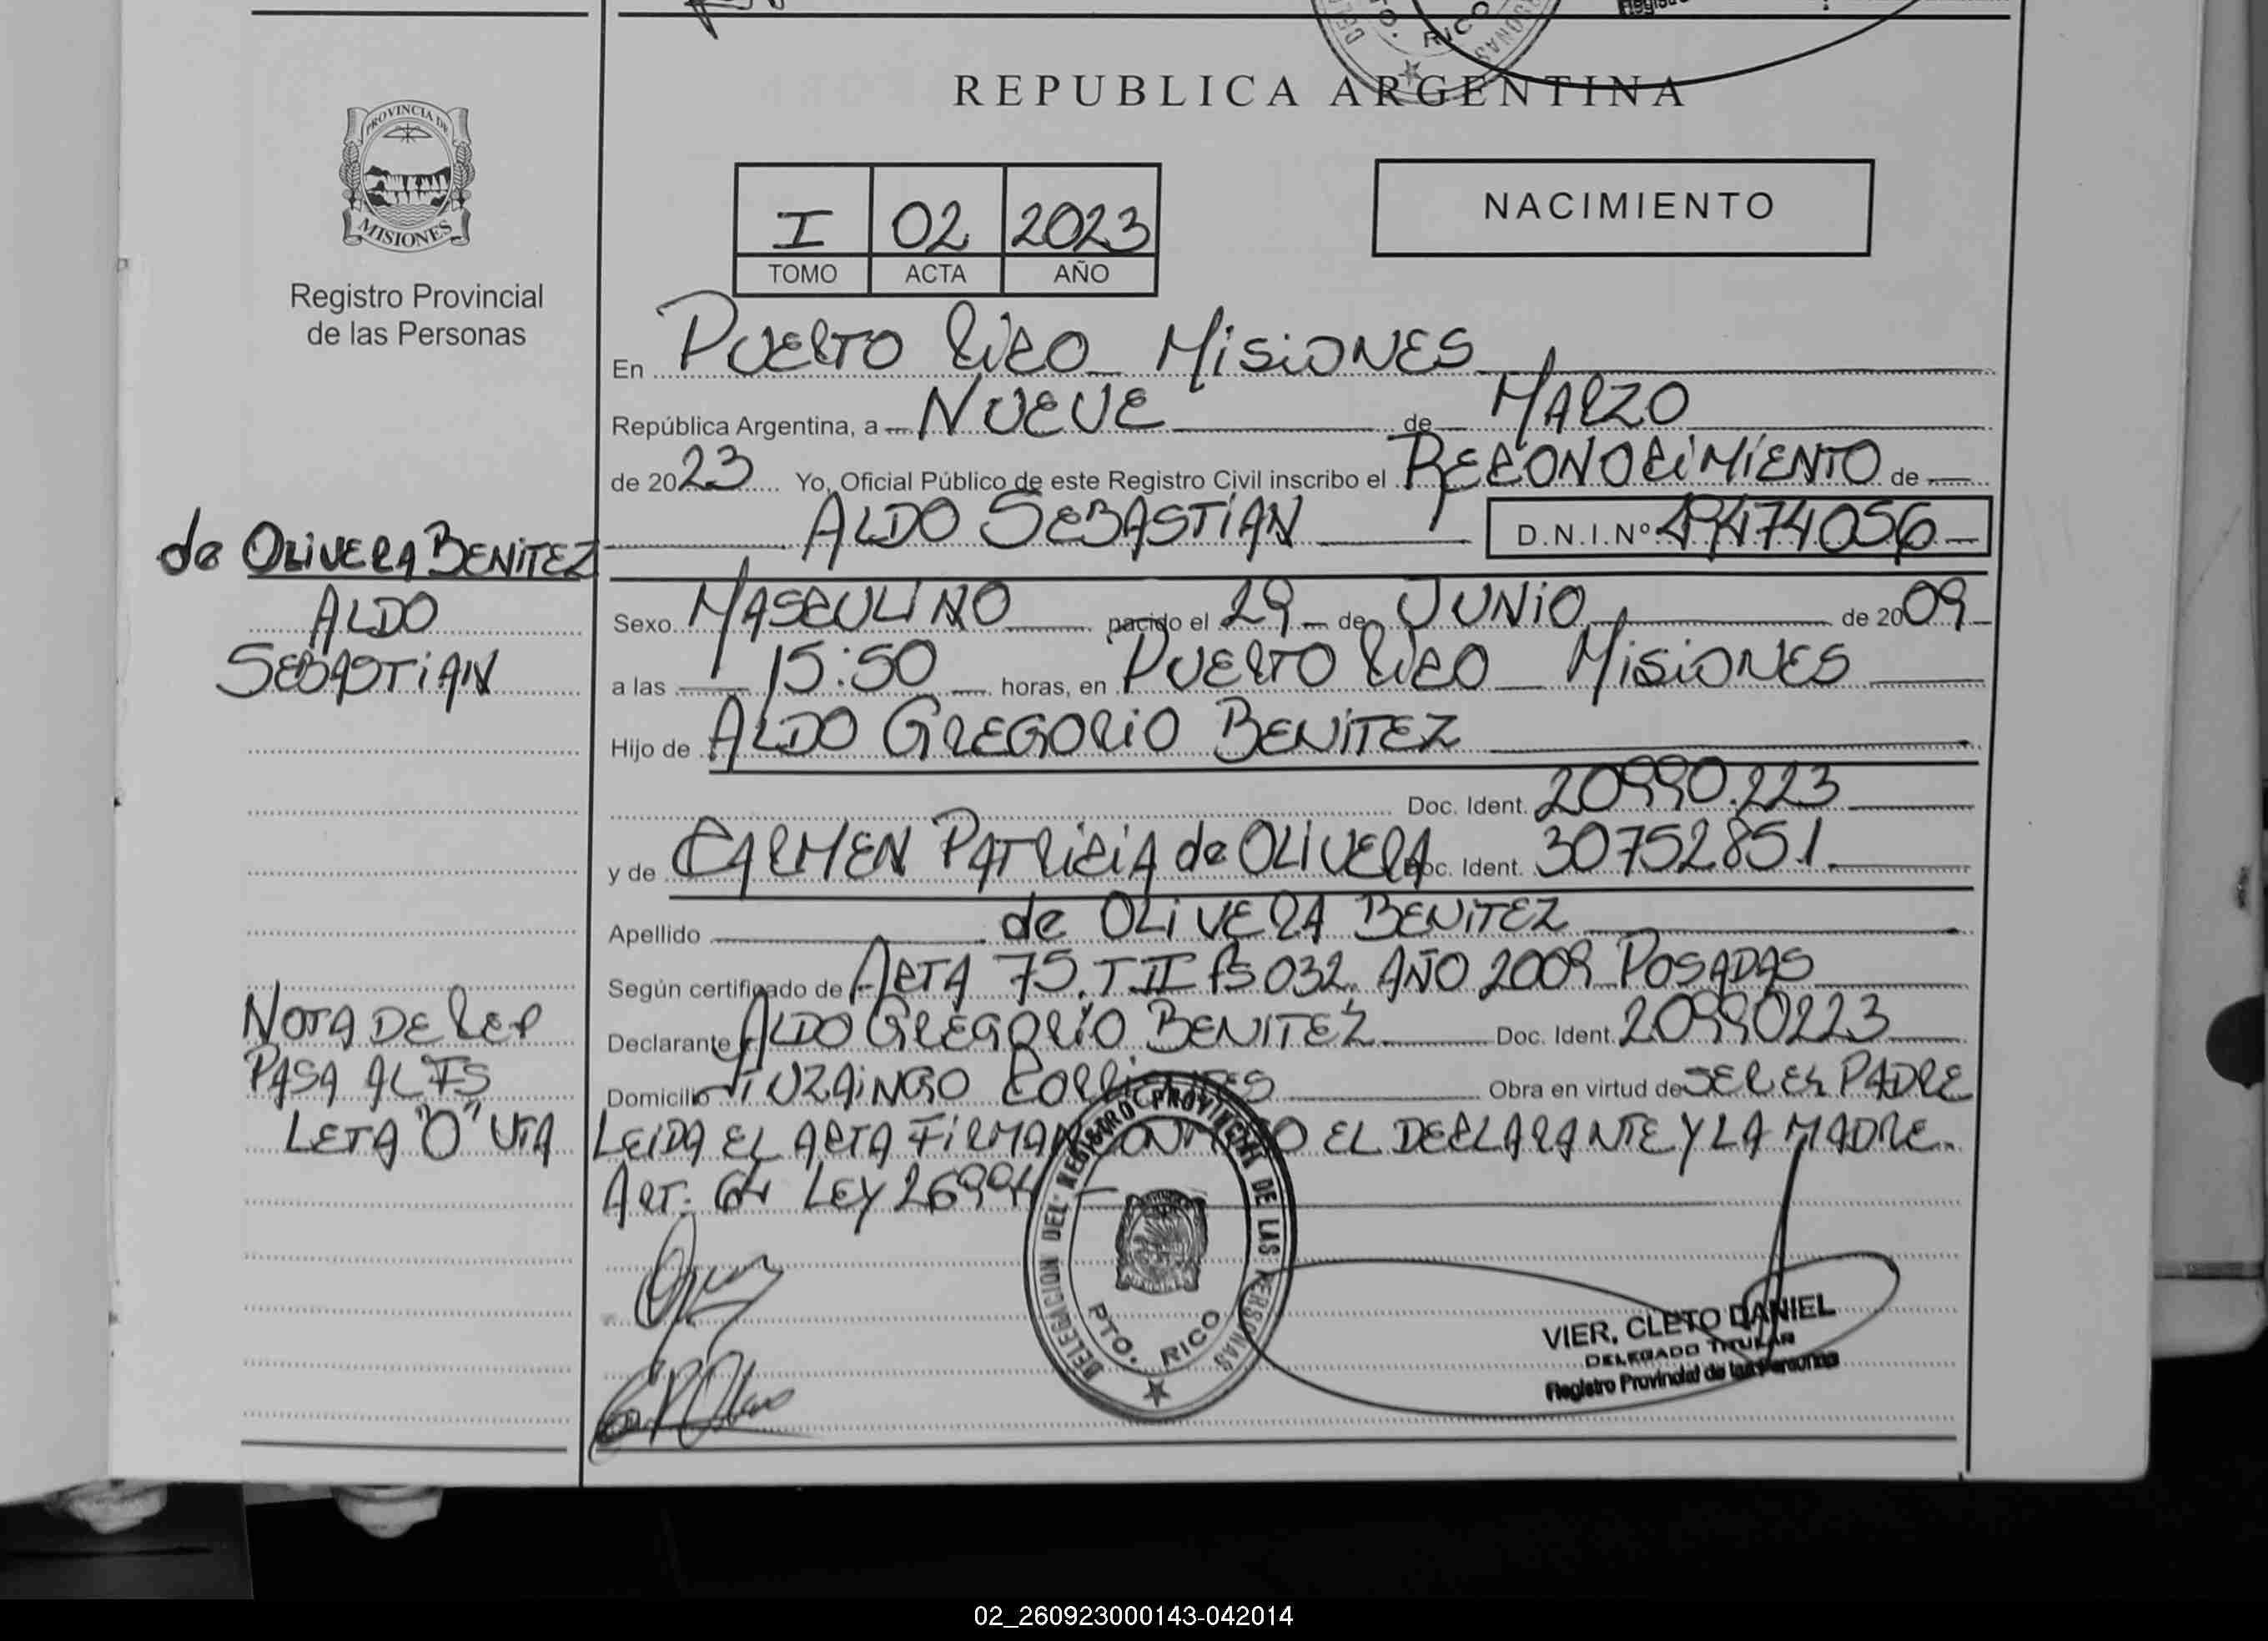 REPUBLICA ARGENTINA
PROVINCIA DE
MISIONES
Registro Provincial
de las Personas
I 02 2023
TOMO ACTA AÑO
NACIMIENTO
En PUERTO RICO MISIONES
República Argentina, a NUEVE de MARZO
de 2023 Yo, Oficial Público de este Registro Civil inscribo el RECONOCIMIENTO de
ALDO SEBASTIAN D.N.I.Nº 49474056
de OLIVERA BENITEZ
ALDO
SEBASTIAN
Sexo MASCULINO nacido el 29 de JUNIO de 2009
a las 15:50 horas, en PUERTO RICO MISIONES
Hijo de ALDO GREGORIO BENITEZ
Doc. Ident. 20990.223
y de CARMEN PATRICIA de OLIVERA Doc. Ident. 30752851.
Apellido de OLIVERA BENITEZ
Según certificado de ACTA 75. T II Fs 032. AÑO 2009 POSADAS
Declarante ALDO GREGORIO BENITEZ Doc. Ident. 20990223
Domicilio ITUZAINGO CORRIENTES Obra en virtud de SER EL PADRE
NOTA DE REP
PASA AL FS
LETA "O" VTA
LEIDA EL ACTA FIRMAN CONMIGO EL DECLARANTE Y LA MADRE.
ART. 64 LEY 26994
DELEGACION DEL REGISTRO PROVINCIAL DE LAS PERSONAS
PTO. RICO
VIER, CLETO DANIEL
DELEGADO TITULAR
Registro Provincial de las Personas
02_260923000143-042014